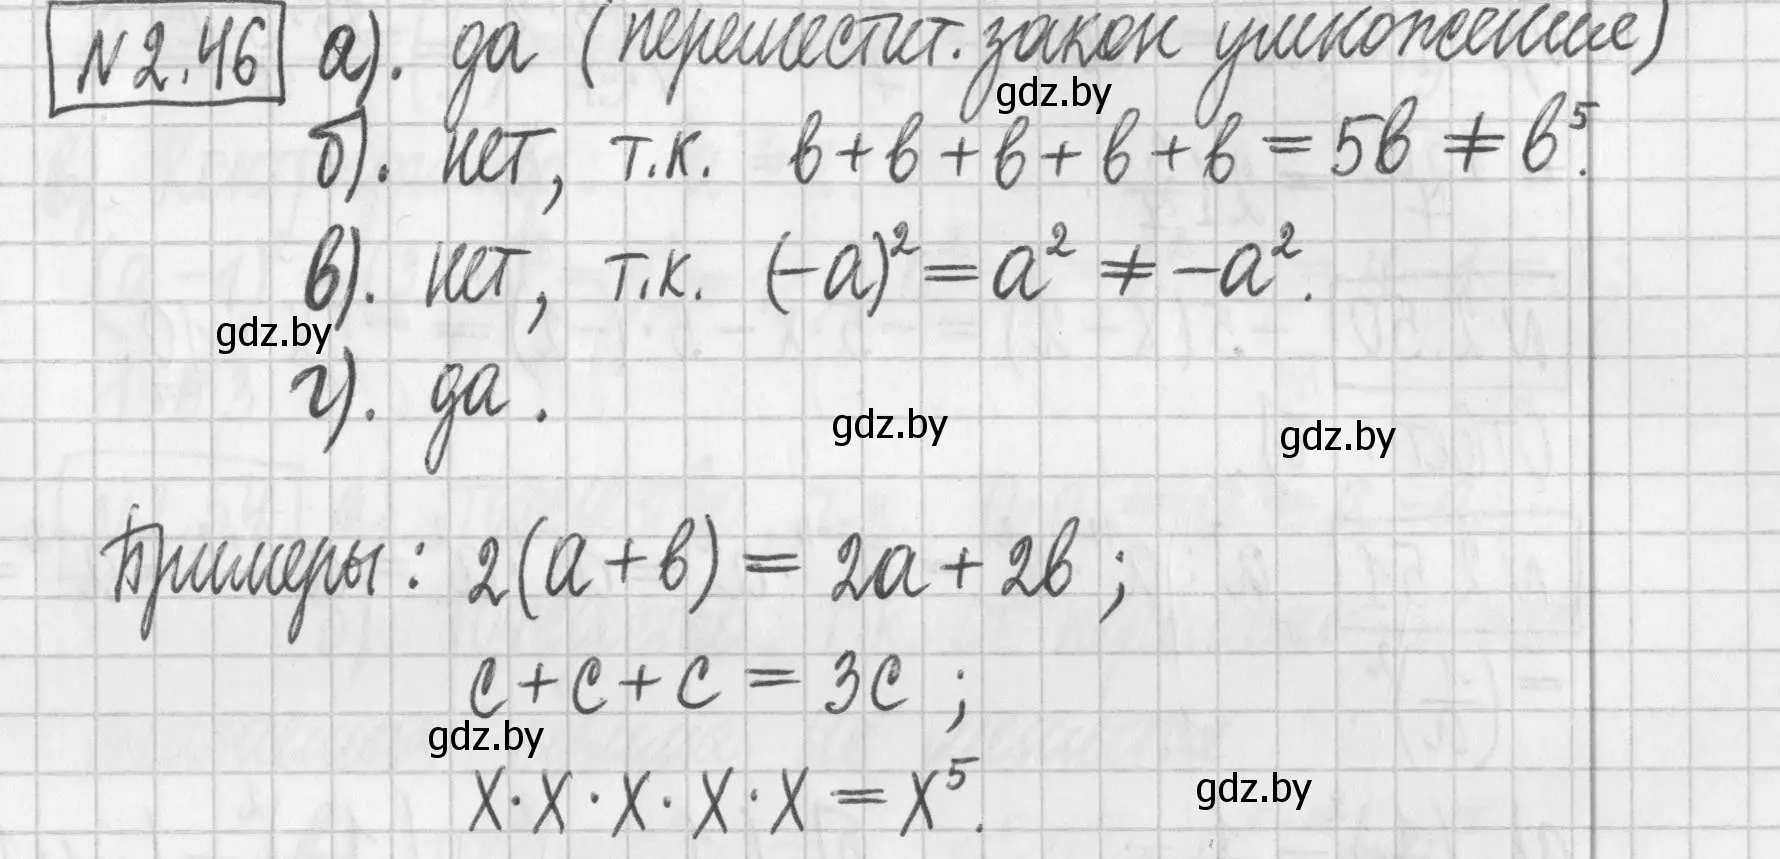 №2.46 а). да (перемести́т. закон умножения)
gdz.by
б). нет, т.к. в + в + в + в + в = 5в ≠ в⁵.
в). нет, т.к. (-а)² = а² ≠ -а².
gdz.by
г). да.
gdz.by gdz.by
Примеры: 2(а + в) = 2а + 2в ;
с + с + с = 3с ;
gdz.by
х · х · х · х · х = х⁵.
gdz.by